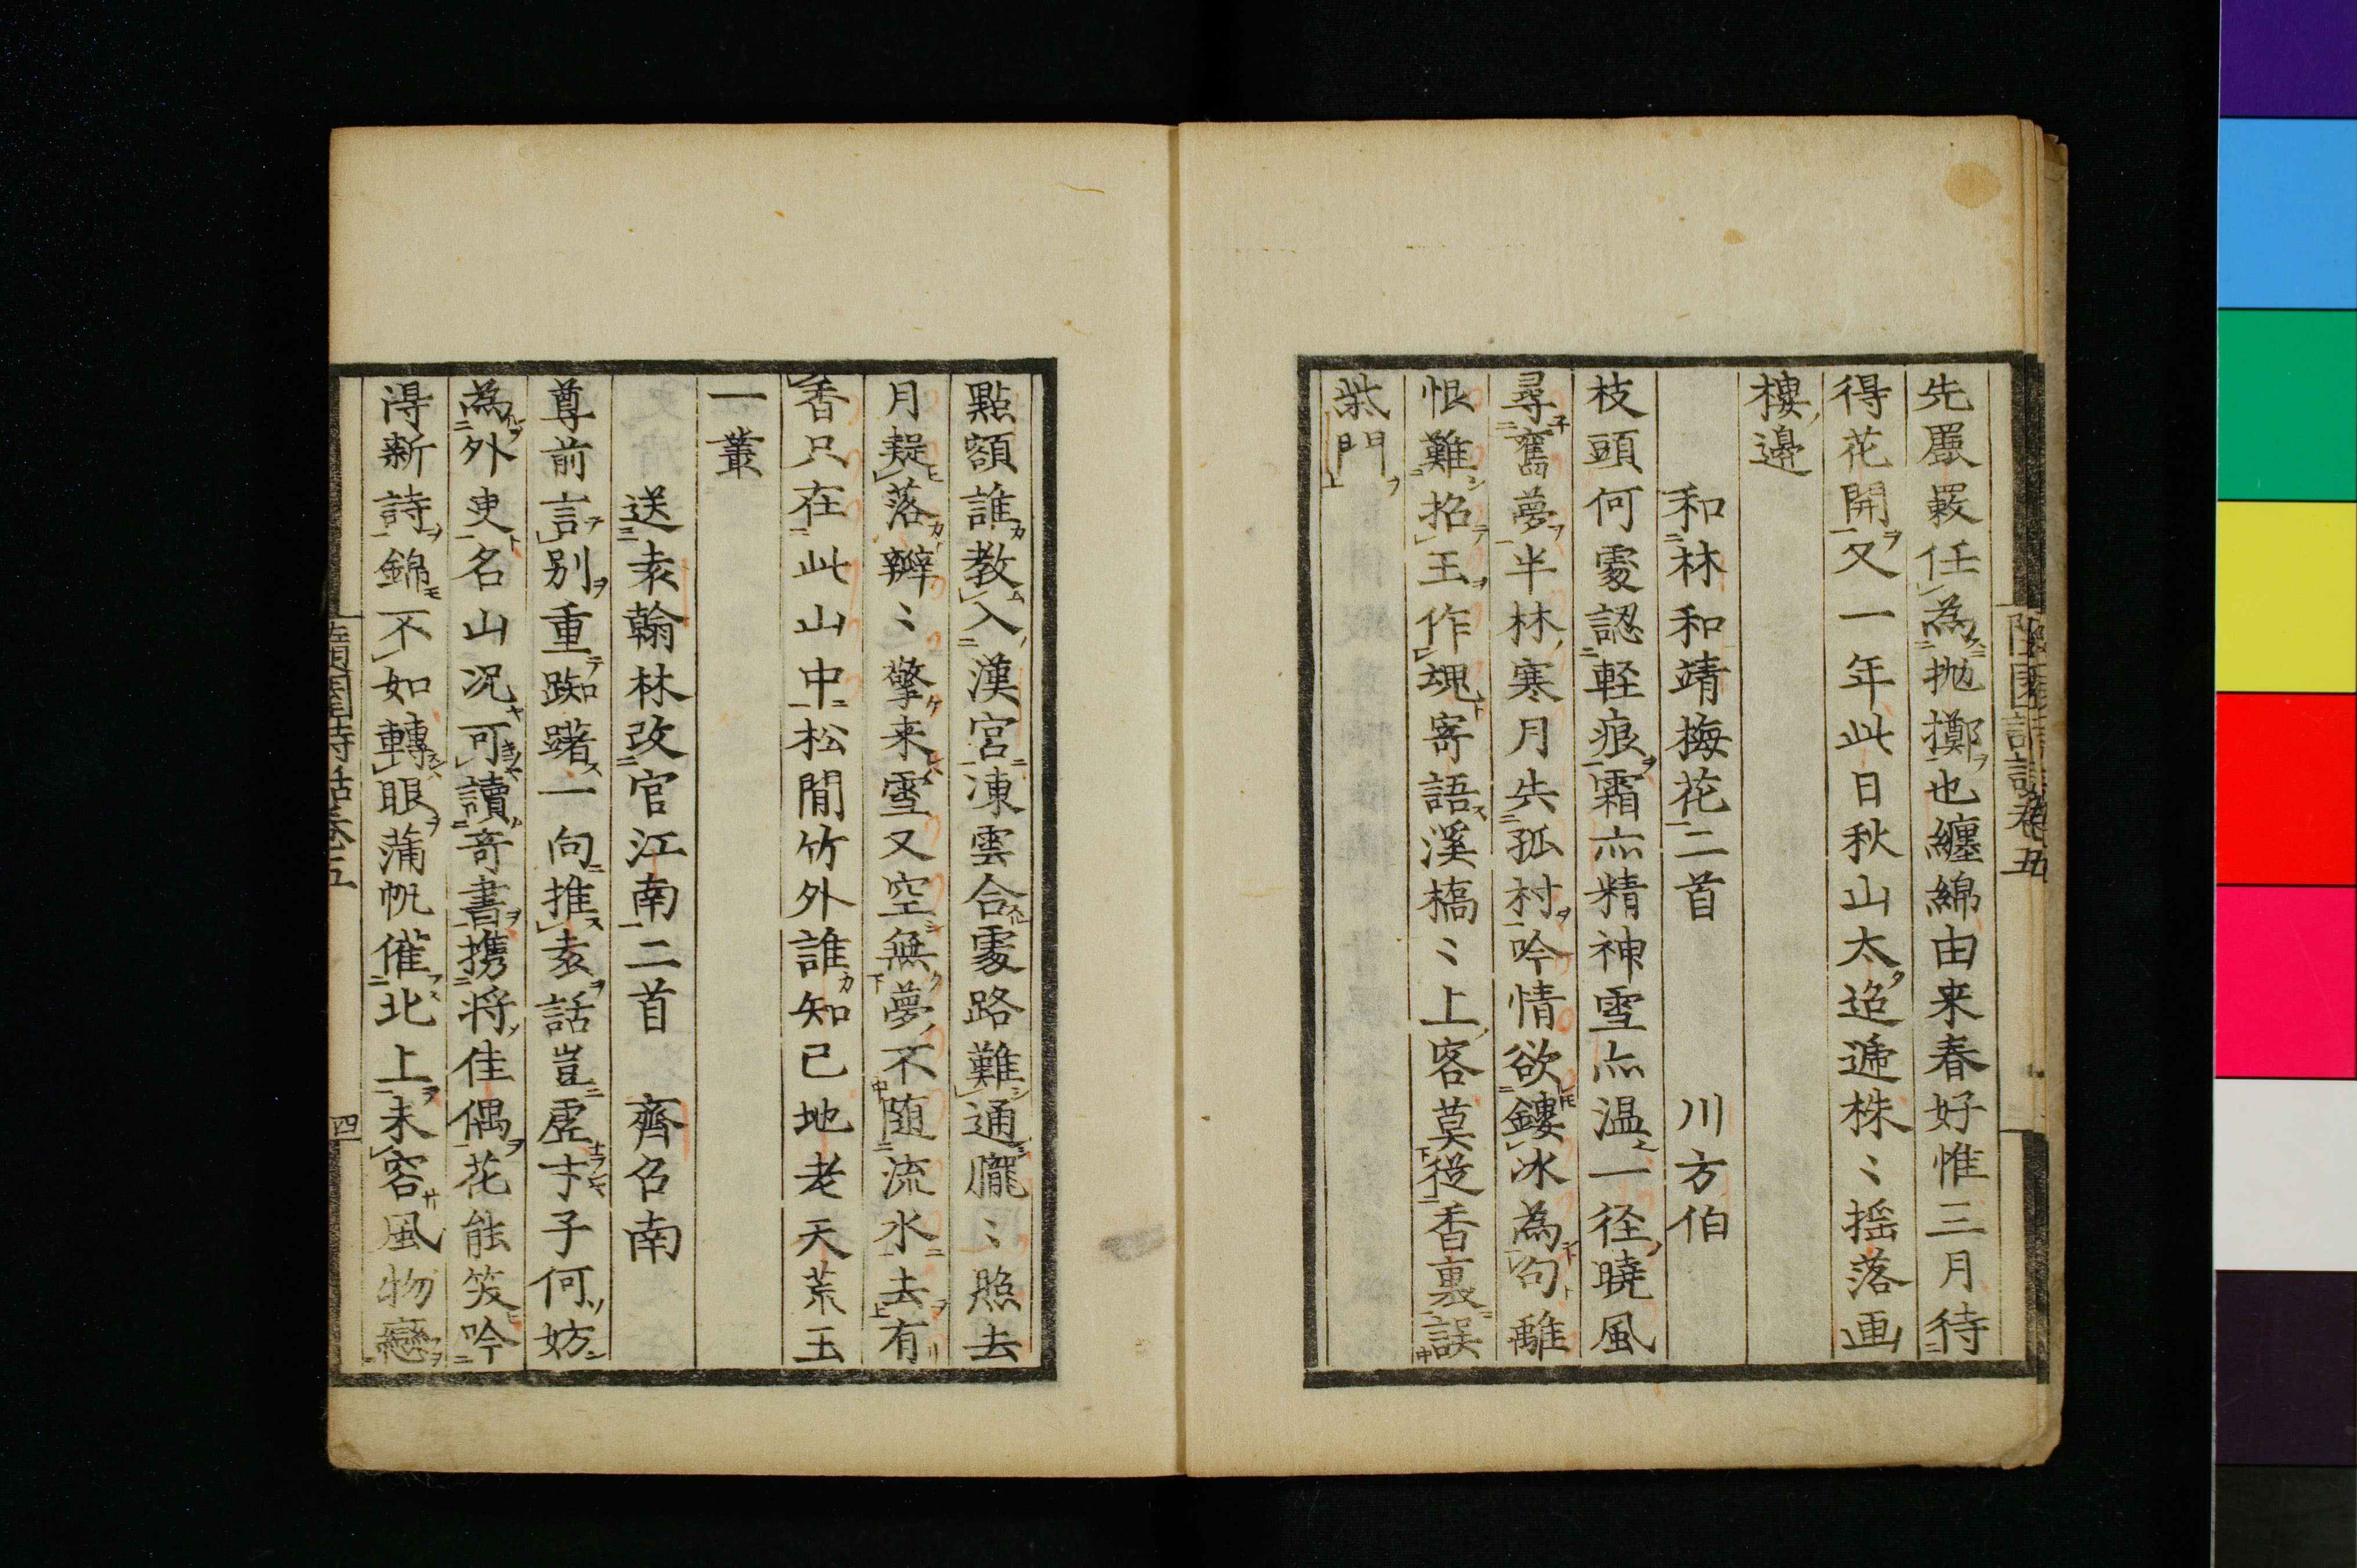 先嚴嚴任為抛擲也纏綿由来春好惟三月待
得花開又一年此日秋山太迢遞株〻揺落画
樓邊
和林和靖梅花二首 川方伯
枝頭何處認軽痕霜亦精神雪亦温一径曉風
尋舊夢半林寒月失孤村吟情欲鏤冰為句離
恨難招玉作魂寄語溪橋〻上客莫從香裏誤
柴門
點額誰教入漢宮凍雲合處路難通朧〻照去
月疑落瓣〻擎来雪又空無夢不随流水去有
香只在此山中松間竹外誰知已地老天荒玉
一叢
送袁翰林改官江南二首 齊召南
尊前言別重踟躇一向推袁話豈虚才子何妨
為外吏名山况可讀竒書攜将佳偶花能笑吟
得新詩錦不如轉眼蒲帆催北上未容風物戀
随園詩話卷五
四